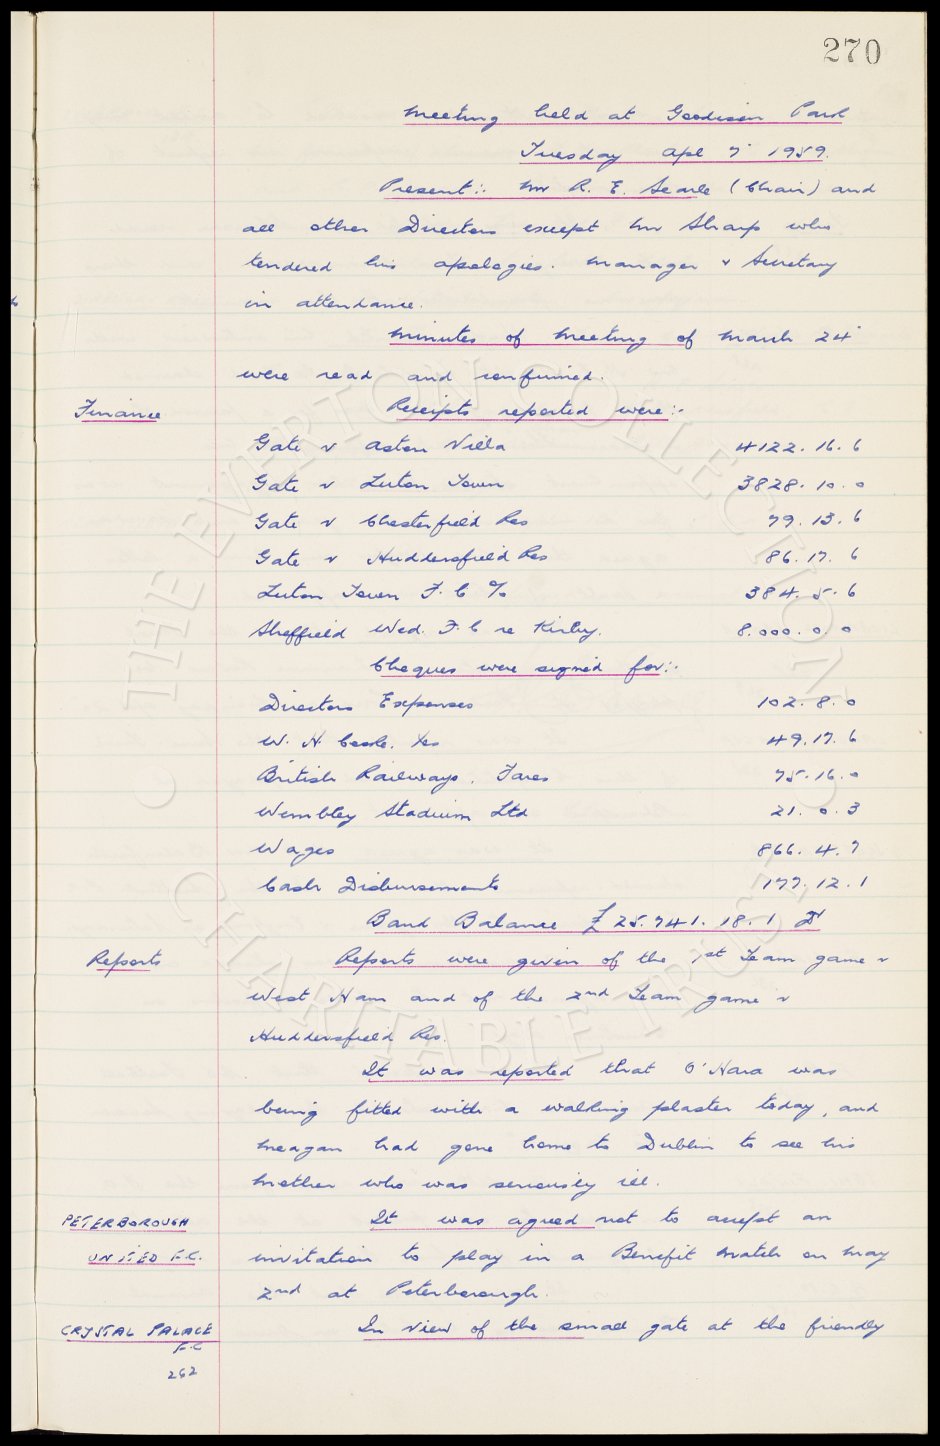 270
Meeting held at Goodison Park
Tuesday Apl 7 1959.
Present:- Mr R. E. Searle (Chair) and
all other Directors except Mr Sharp who
tendered his apologies. Manager & Secretary
in attendance.
Minutes of Meeting of March 24
were read and confirmed.
Finance Receipts reported were:-
Gate v Aston Villa 4122. 16. 6
Gate v Luton Town 3828. 10. 0
Gate v Chesterfield Res 79. 13. 6
Gate v Huddersfield Res 86. 17. 6
Luton Town F. C % 384. 5. 6
Sheffield Wed. F. C re Kirby. 8.000. 0. 0
Cheques were signed for:-
Directors Expenses 102. 8. 0
W. H. Cash. 49. 17. 6
British Railways. Fares 75. 16. 0
Wembley Stadium Ltd 21. 0. 3
Wages 866. 4. 7
Cash Disbursements 177. 12. 1
Bank Balance £25.741. 18. 1 Dr
Reports Reports were given of the 1st Team game v
West Ham and of the 2nd Team game v
Huddersfield Res.
It was reported that O'Hara was
being fitted with a walking plaster today, and
Meagan had gone home to Dublin to see his
Mother who was seriously ill.
PETERBOROUGH It was agreed not to accept an
UNITED F.C. invitation to play in a Benefit Match on May
2nd at Peterborough.
CRYSTAL PALACE In view of the small gate at the friendly
F.C
262
THE EVERTON COLLECTION
CHARITABLE TRUST